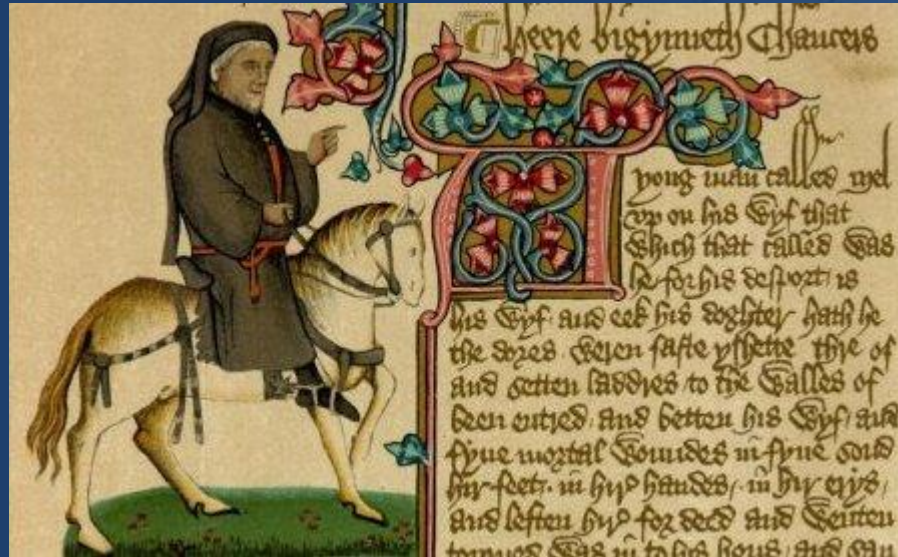 Heere bigynneth Chaucers
yong man called Mel
vp on his wyf that
which that called was
he for his desport is
his wyf and eek his doghter hath he
the dores weren faste yshette thre of
and setten laddres to the walles of
been entred and betten his wyf and
fyue mortal woundes in fyue sond
hir feet in hire handes in hir erys
and leften hire for deed and wenten
torned was in to his hous and sau